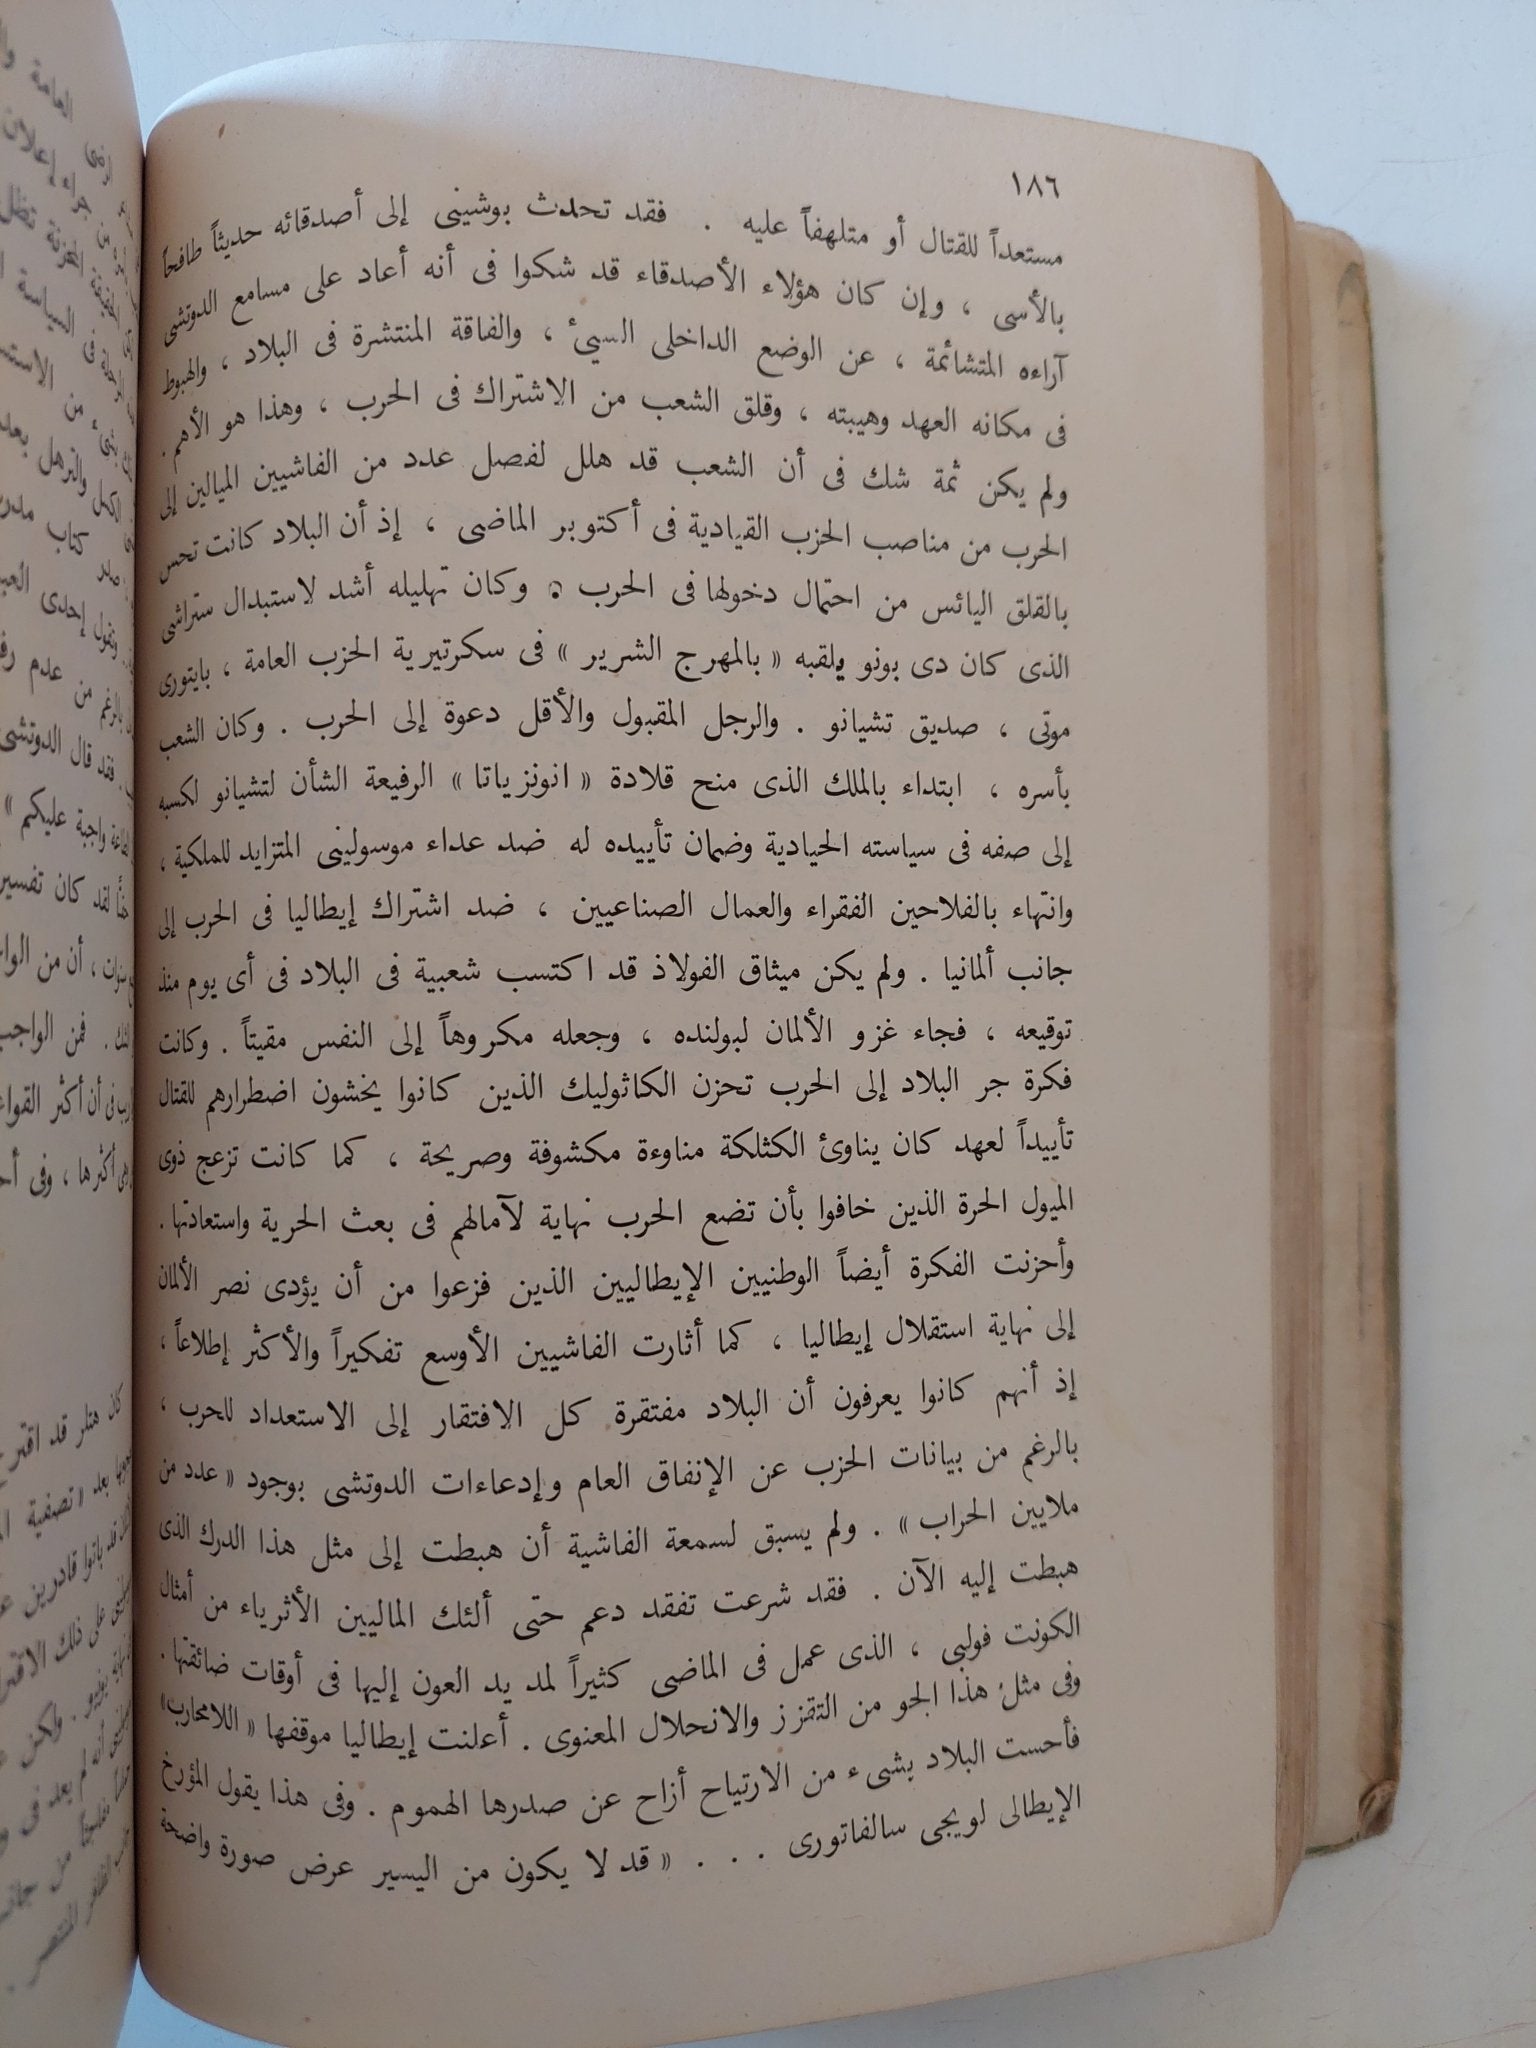 ١٨٦
مستعداً للقتال أو متلهفاً عليه . فقد تحدث بوشينى إلى أصدقائه حديثاً طافحاً
بالأسى ، وإن كان هؤلاء الأصدقاء قد شكوا فى أنه أعاد على مسامع الدوتشى
آراءه المتشائمة ، عن الوضع الداخلى السيئ ، والفاقة المنتشرة فى البلاد ، والهبوط
فى مكانه العهد وهيبته ، وقلق الشعب من الاشتراك فى الحرب ، وهذا هو الأهم .
ولم يكن ثمة شك فى أن الشعب قد هلل لفصل عدد من الفاشيين الميالين إلى
الحرب من مناصب الحزب القيادية فى أكتوبر الماضى ، إذ أن البلاد كانت تحس
بالقلق اليائس من احتمال دخولها فى الحرب . وكان تهليله أشد لاستبدال ستراشى
الذى كان دى بونو يلقبه « بالمهرج الشرير » فى سكرتيرية الحزب العامة ، بايتورى
موتى ، صديق تشيانو . والرجل المقبول والأقل دعوة إلى الحرب . وكان الشعب
بأسره ، ابتداء بالملك الذى منح قلادة « انونزياتا » الرفيعة الشأن لتشيانو لكسبه
إلى صفه فى سياسته الحيادية وضمان تأييده له ضد عداء موسولينى المتزايد للملكية ،
وانتهاء بالفلاحين الفقراء والعمال الصناعيين ، ضد اشتراك إيطاليا فى الحرب إلى
جانب ألمانيا . ولم يكن ميثاق الفولاذ قد اكتسب شعبية فى البلاد فى أى يوم منذ
توقيعه ، فجاء غزو الألمان لبولنده ، وجعله مكروهاً إلى النفس مقيتاً . وكانت
فكرة جر البلاد إلى الحرب تحزن الكاثوليك الذين كانوا يخشون اضطرارهم للقتال
تأييداً لعهد كان يناوئ الكثلكة مناوءة مكشوفة وصريحة ، كما كانت تزعج ذوى
الميول الحرة الذين خافوا بأن تضع الحرب نهاية لآمالهم فى بعث الحرية واستعادتها .
وأحزنت الفكرة أيضاً الوطنيين الإيطاليين الذين فزعوا من أن يؤدى نصر الألمان
إلى نهاية استقلال إيطاليا ، كما أثارت الفاشيين الأوسع تفكيراً والأكثر إطلاعاً ،
إذ أنهم كانوا يعرفون أن البلاد مفتقرة كل الافتقار إلى الاستعداد للحرب ،
بالرغم من بيانات الحزب عن الإنفاق العام وإدعاءات الدوتشى بوجود « عدد من
ملايين الحراب » . ولم يسبق لسمعة الفاشية أن هبطت إلى مثل هذا الدرك الذى
هبطت إليه الآن . فقد شرعت تفقد دعم حتى ألئك الماليين الأثرياء من أمثال
الكونت فولبى ، الذى عمل فى الماضى كثيراً لمد يد العون إليها فى أوقات ضائقتها .
وفى مثل هذا الجو من التقزز والانحلال المعنوى . أعلنت إيطاليا موقفها « اللامحارب»
فأحست البلاد بشىء من الارتياح أزاح عن صدرها الهموم . وفى هذا يقول المؤرخ
الإيطالى لويجى سالفاتورى . . . « قد لا يكون من اليسير عرض صورة واضحة